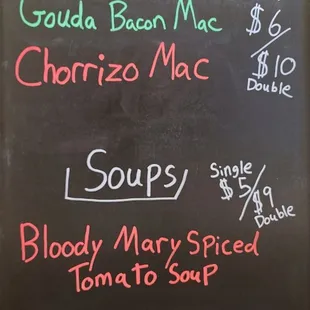 Gouda Bacon Mac $6/
Chorrizo Mac $10
Double
Soups Single
$5/$9
Double
Bloody Mary Spiced
Tomato Soup